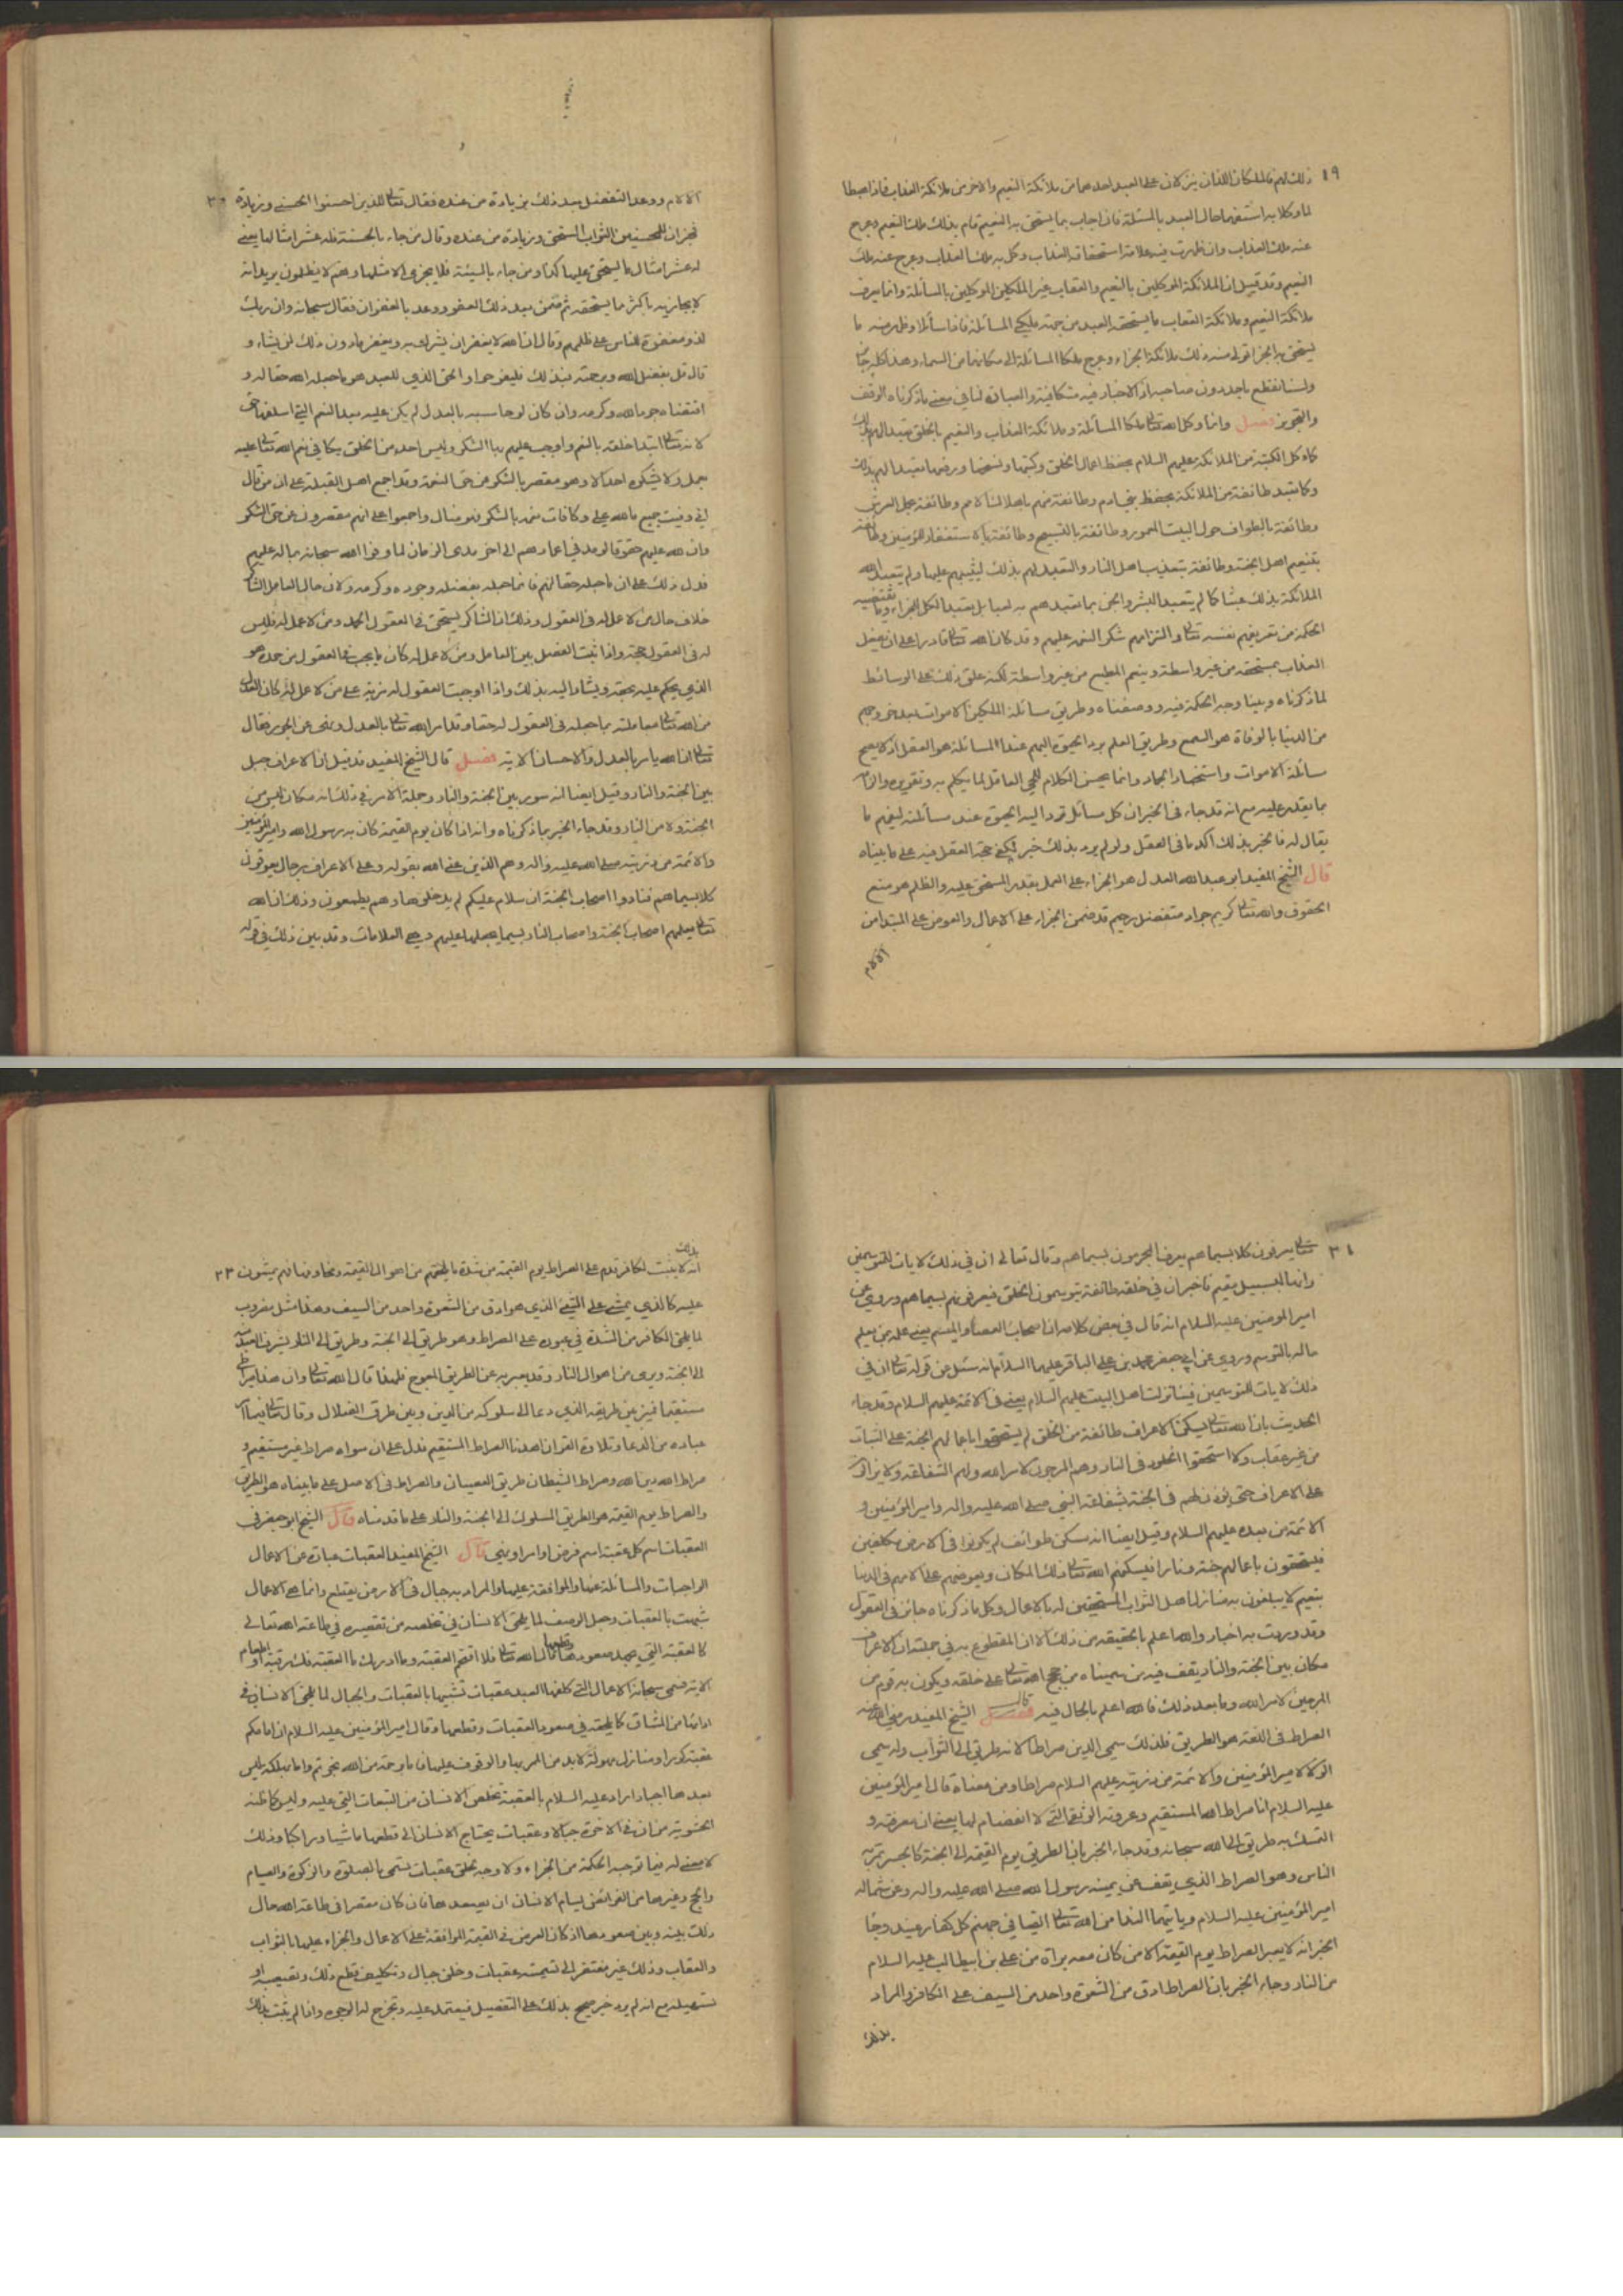 ٢٩ ذلك لهم فالملكان اللذان ينزلان على العبد احدهما من ملائكة النعيم والاخر من ملائكة العذاب فاذا هبطا
لما وكلا به استفهما حال العبد بالمسئلة فان اجاب بما يستحق به النعيم قام بذلك ملك النعيم وعرج
عنه ملك العذاب وان ظهرت فيه علامة استحقاق العذاب وكل به ملك العذاب وعرج عنه ملك
النعيم وقد قيل ان الملائكة الموكلين بالنعيم والعقاب غير الملكين الموكلين بالمسائلة وانما يعرف
ملائكة النعيم وملائكة العقاب ما يستحقه العبد من جهة ملكي المسائلة فاذا سائلا وظهر منه ما
يستحق به الجزا تولى منه ذلك ملائكة الجزاء وعرج ملكا المسائلة الى مكانهما من السماء وهذا كله جائز
ولسنا نقطع باحد دون صاحبه اذ الاخبار فيه متكافية والعبادة لنا في معنى ما ذكرناه الوقف
والتجويز فصل وانما وكل الله تعالى ملكا المسائلة وملائكة العذاب والنعيم بالخلق تعبدا لهم بذلك
كما وكل الكتبة من الملائكة عليهم السلام بحفظ اعمال الخلق وكتبها ونسخها ورفعها تعبدا لهم بذلك
وكما تعبد طائفة من الملائكة بحفظ بني ادم وطائفة منهم باهلاك الامم وطائفة بحمل العرش
وطائفة بالطواف حول البيت المعمور وطائفة بالتسبيح وطائفة بالاستغفار للمؤمنين وطائفة
بتنعيم اهل الجنة وطائفة بتعذيب اهل النار والتعبد لهم بذلك ليثيبهم عليها ولم يتعبد الله
الملائكة بذلك عبثا كما لم يتعبد البشر والجن بما تعبدهم به لعبا بل تعبد الكل للجزاء وما تقتضيه
الحكمة من تعريفهم نفسه تعالى والتزامهم شكر النعمة عليهم وقد كان الله تعالى قادرا على ان يفعل
العذاب بمستحقه من غير واسطة وينعم المطيع من غير واسطة لكنه علق ذلك على الوسائط
لما ذكرناه وبينا وجه الحكمة فيه ووصفناه وطريق مسائلة الملكين الاموات بعد خروجهم
من الدنيا بالوفاة هو السمع وطريق العلم برد الحيوة اليهم عند المسائلة هو العقل اذ لا يصح
مسائلة الاموات واستخبار الجماد وانما يحسن الكلام للحي العاقل لما يكلم به وتقريره والزامه
بما يقدر عليه مع انه قد جاء في الخبر ان كل مسائل ترد اليه الحيوة عند مسائلته ليفهم ما
يقال له فالخبر بذلك اكد ما في العقل ولو لم يرد بذلك خبر لكفى حجة العقل فيه على ما بيناه
قال الشيخ المفيد ابو عبد الله العدل هو الجزاء على العمل بقدر المستحق عليه والظلم هو منع
الحقوق والله تعالى كريم جواد متفضل رحيم قد ضمن الجزاء على الاعمال والعوض على المبتدا من
الالام
الالام ووعد التفضل بعد ذلك بزيادة من عنده فقال تعالى للذين احسنوا الحسنى وزيادة ٣٠
فخبر ان للمحسنين الثواب المستحق وزيادة من عنده وقال من جاء بالحسنة فله عشر امثالها يعني
له عشر امثال ما يستحق عليها كذا ومن جاء بالسيئة فلا يجزى الا مثلها وهم لا يظلمون يريد انه
لا يجازيه باكثر مما يستحقه ثم ضمن بعد ذلك العفو ووعد بالغفران فقال سبحانه وان ربك
لذو مغفرة للناس على ظلمهم وقال ان الله لا يغفر ان يشرك به ويغفر ما دون ذلك لمن يشاء و
قال قل بفضل الله وبرحمته فبذلك فليفرحوا والحق الذي للعبد هو ما جعله الله حقا له و
اقتضاه جود الله وكرمه وان كان لو حاسبه بالعدل لم يكن عليه بعد النعم التي اسلفها حق
لانه تعالى ابتدا خلقه بالنعم واوجب عليهم بها الشكر وليس احد من الخلق يكافي نعم الله تعالى عليه
بعمل ولا يشكره احد الا وهو مقصر بالشكر من حق النعمة وقد اجمع اهل القبلة على ان من قال
اني وفيت جميع ما لله علي وكافات نعمه بالشكر فهو ضال واجمعوا على انهم مقصرون عن حق الشكر
وان لله عليهم حقوقا لو مد في اعمارهم الى اخر مدى الزمان لما وفوا الله سبحانه بما له عليهم
فدل ذلك على ان ما جعله حقا لهم فانما جعله بفضله وجوده وكرمه ولان حال العامل الشاكر
خلاف حال من لا عمل له في العقول وذلك ان الشاكر يستحق في العقول الحمد ومن لا عمل له فليس
له في العقول حمد واذا ثبت الفصل بين العامل ومن لا عمل له كان ما يجب في العقول من حمده هو
الذي يحكم عليه بحقه ويشار اليه بذلك واذا اوجبت العقول له مزية على من لا عمل له كان العدل
من الله تعالى معاملته بما جعله في العقول له حقا وقد امر الله تعالى بالعدل ونهى عن الجور فقال
تعالى ان الله يامر بالعدل والاحسان الاية فصل قال الشيخ المفيد قد قيل ان الاعراف جبل
بين الجنة والنار وقيل ايضا انه سور بين الجنة والنار وجملة الامر في ذلك انه مكان ليس من
الجنة ولا من النار وقد جاء الخبر بما ذكرناه وانه اذا كان يوم القيمة كان به رسول الله وامير المؤمنين
والائمة من ذريته صلى الله عليه واله وهم الذين عنى الله بقوله وعلى الاعراف رجال يعرفون
كلا بسيماهم فنادوا اصحاب الجنة ان سلام عليكم لم يدخلوها وهم يطمعون وذلك ان الله
تعالى يعلمهم اصحاب الجنة واصحاب النار بسيما يجعلها عليهم وهي العلامات وقد بين ذلك في قوله
٣١ تعالى يعرفون كلا بسيماهم يعرف المجرمون بسيماهم وقال تعالى ان في ذلك لايات للمتوسمين
وانها لبسبيل مقيم فاخبر ان في خلقه طائفة يتوسمون الخلق فيعرفونهم بسيماهم وروي عن
امير المؤمنين عليه السلام انه قال في بعض كلامه انا صاحب العصا والميسم يعني علمه بمن يعلم
حاله بالتوسم وروي عن ابي جعفر محمد بن علي الباقر عليهما السلام انه سئل عن قوله تعالى ان في
ذلك لايات للمتوسمين فينا نزلت اهل البيت عليهم السلام يعني في الائمة عليهم السلام وقد جاء
الحديث بان الله تعالى يسكن الاعراف طائفة من الخلق لم يستحقوا باعمالهم الجنة على الثبات
من غير عقاب ولا استحقوا الخلود في النار وهم المرجون لامر الله ولهم الشفاعة ولا يزالون
على الاعراف حتى يؤذن لهم في الجنة بشفاعة النبي صلى الله عليه واله وامير المؤمنين و
الائمة من بعده عليهم السلام وقيل ايضا انه مسكن طوائف لم يكونوا في الارض مكلفين
فيستحقون باعمالهم جنة ونارا فيسكنهم الله تعالى ذلك المكان ويعوضهم على الامهم في الدنيا
بنعيم لا يبلغون به منازل اهل الثواب المستحقين له بالاعمال وكل ما ذكرناه جائز في العقول
وقد وردت به اخبار والله اعلم بالحقيقة من ذلك الا ان المقطوع به في جملته ان الاعراف
مكان بين الجنة والنار يقف فيه من سميناه من حجج الله تعالى على خلقه ويكون به قوم من
المرجين لامر الله وما بعد ذلك فالله اعلم بالحال فيه فصل قال الشيخ المفيد رضي الله عنه
الصراط في اللغة هو الطريق فلذلك سمي الدين صراطا لانه طريق الى الثواب وله سمي
الولاء لامير المؤمنين والائمة من ذريته عليهم السلام صراطا ومن معناه قال امير المؤمنين
عليه السلام انا صراط الله المستقيم وعروته الوثقى التي لا انفصام لها يعني ان معرفته و
التمسك به طريق الى الله سبحانه وقد جاء الخبر بان الطريق يوم القيمة الى الجنة كالجسر تمر به
الناس وهو الصراط الذي يقف عن يمينه رسول الله صلى الله عليه واله وعن شماله
امير المؤمنين عليه السلام وياتيهما الندا من الله تعالى القيا في جهنم كل كفار عنيد وجاء
الخبر انه لا يعبر الصراط يوم القيمة الا من كان معه براة من علي بن ابيطالب عليه السلام
من النار وجاء الخبر بان الصراط ادق من الشعرة واحد من السيف على الكافر والمراد
بذلك
بذلك
انه لا يثبت لكافر قدم على الصراط يوم القيمة من شدة ما يلحقهم من اهوال القيمة ومخاوفها فهم يمشون ٣٢
عليه كالذي يمشي على الشيء الذي هو ادق من الشعرة واحد من السيف وهذا مثل مضروب
لما يلحق الكافر من الشدة في عبوره على الصراط وهو طريق الى الجنة وطريق الى النار يشرف العبد منه
الى الجنة ويرى من اهوال النار وقد يعبر به عن الطريق المعوج فلهذا قال الله تعالى وان هذا صراطي
مستقيما فميز بين طريقه الذي دعا الى سلوكه من الدين وبين طرق الضلال وقال تعالى فيما امر
عباده من الدعا وتلاوة القران اهدنا الصراط المستقيم فدل على ان سواه صراط غير مستقيم و
صراط الله دين الله وصراط الشيطان طريق العصيان والصراط في الاصل على ما بيناه هو الطريق
والصراط يوم القيمة هو الطريق المسلوك الى الجنة والنار على ما قدمناه قال الشيخ ابو جعفر في
العقبات اسم كل عقبة اسم فرض او امر او نهي قال الشيخ المفيد العقبات عبارة عن الاعمال
الواجبات والمسائلة عنها والموافقة عليها والمراد به جبال في الارض يقطع وانما هي الاعمال
شبهت بالعقبات وجعل الوصف لما يلحق الانسان في تخلصه من تقصيره في طاعة الله تعالى
كالعقبة التي يجهد صعودها وقطعها قال الله تعالى فلا اقتحم العقبة وما ادريك ما العقبة فك رقبة او اطعام
الاية فسمى سبحانه الاعمال التي كلفها العبد عقبات تشبيها بالعقبات والجبال لما يلحق الانسان في
ادائها من المشاق كما يلحقه في صعود العقبات وقطعها وقال امير المؤمنين عليه السلام ان امامكم
عقبة كؤدا ومنازل مهولة لا بد من الممر بها والوقوف عليها فاما برحمة من الله نجوتم واما بهلكة ليس
بعدها انجبار اراد عليه السلام بالعقبة تخلص الانسان من التبعات التي عليه وليس كما ظنه
الحشوية من ان في الاخرة جبالا وعقبات يحتاج الانسان الى قطعها ماشيا وراكبا وذلك
لا معنى له فيما توجبه الحكمة من الجزاء ولا وجه لخلق عقبات تسمى بالصلوة والزكوة والصيام
والحج وغيرها من الفرائض يسام الانسان ان يصعدها فان كان مقصرا في طاعة الله حال
ذلك بينه وبين صعودها اذ كان الغرض في القيمة الموافقة على الاعمال والجزاء عليها بالثواب
والعقاب وذلك غير مفتقر الى تسمية عقبات وخلق جبال وتكليف قطع ذلك وتصعيبه او
تسهيله مع انه لم يرد خبر صحيح بذلك على التفصيل فيعتمد عليه وتخرج له الوجوه واذا لم يثبت بذلك